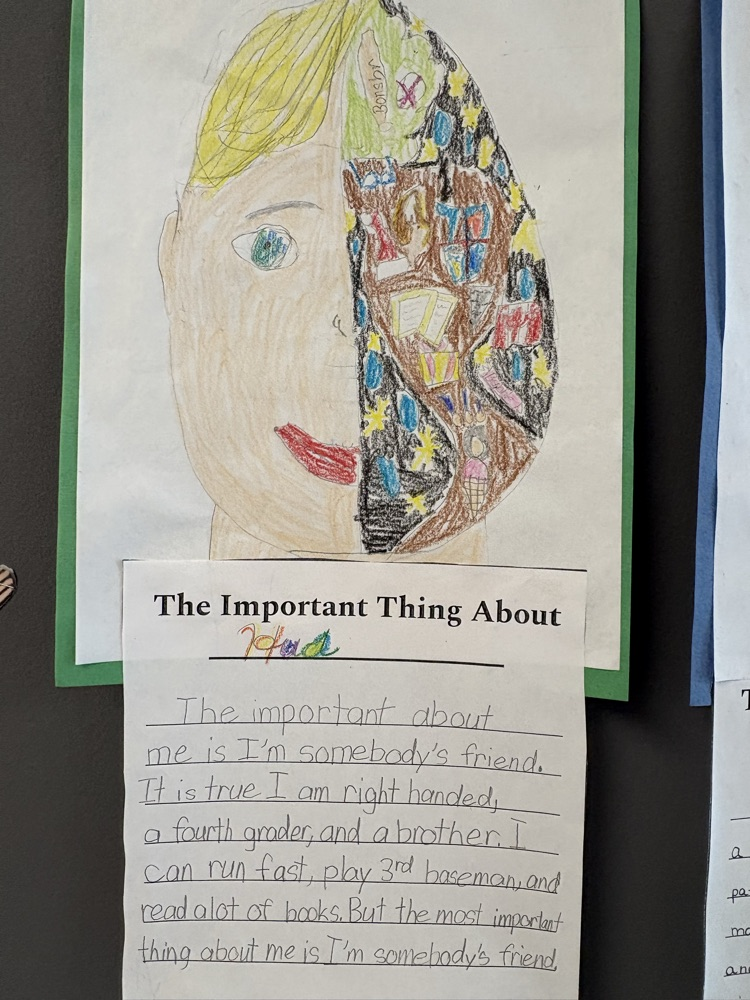 The Important Thing About
The important about
me is I'm somebody's friend.
It is true I am right handed,
a fourth grader, and a brother. I
can run fast, play 3rd baseman, and
read alot of books. But the most important
thing about me is I'm somebody's friend.